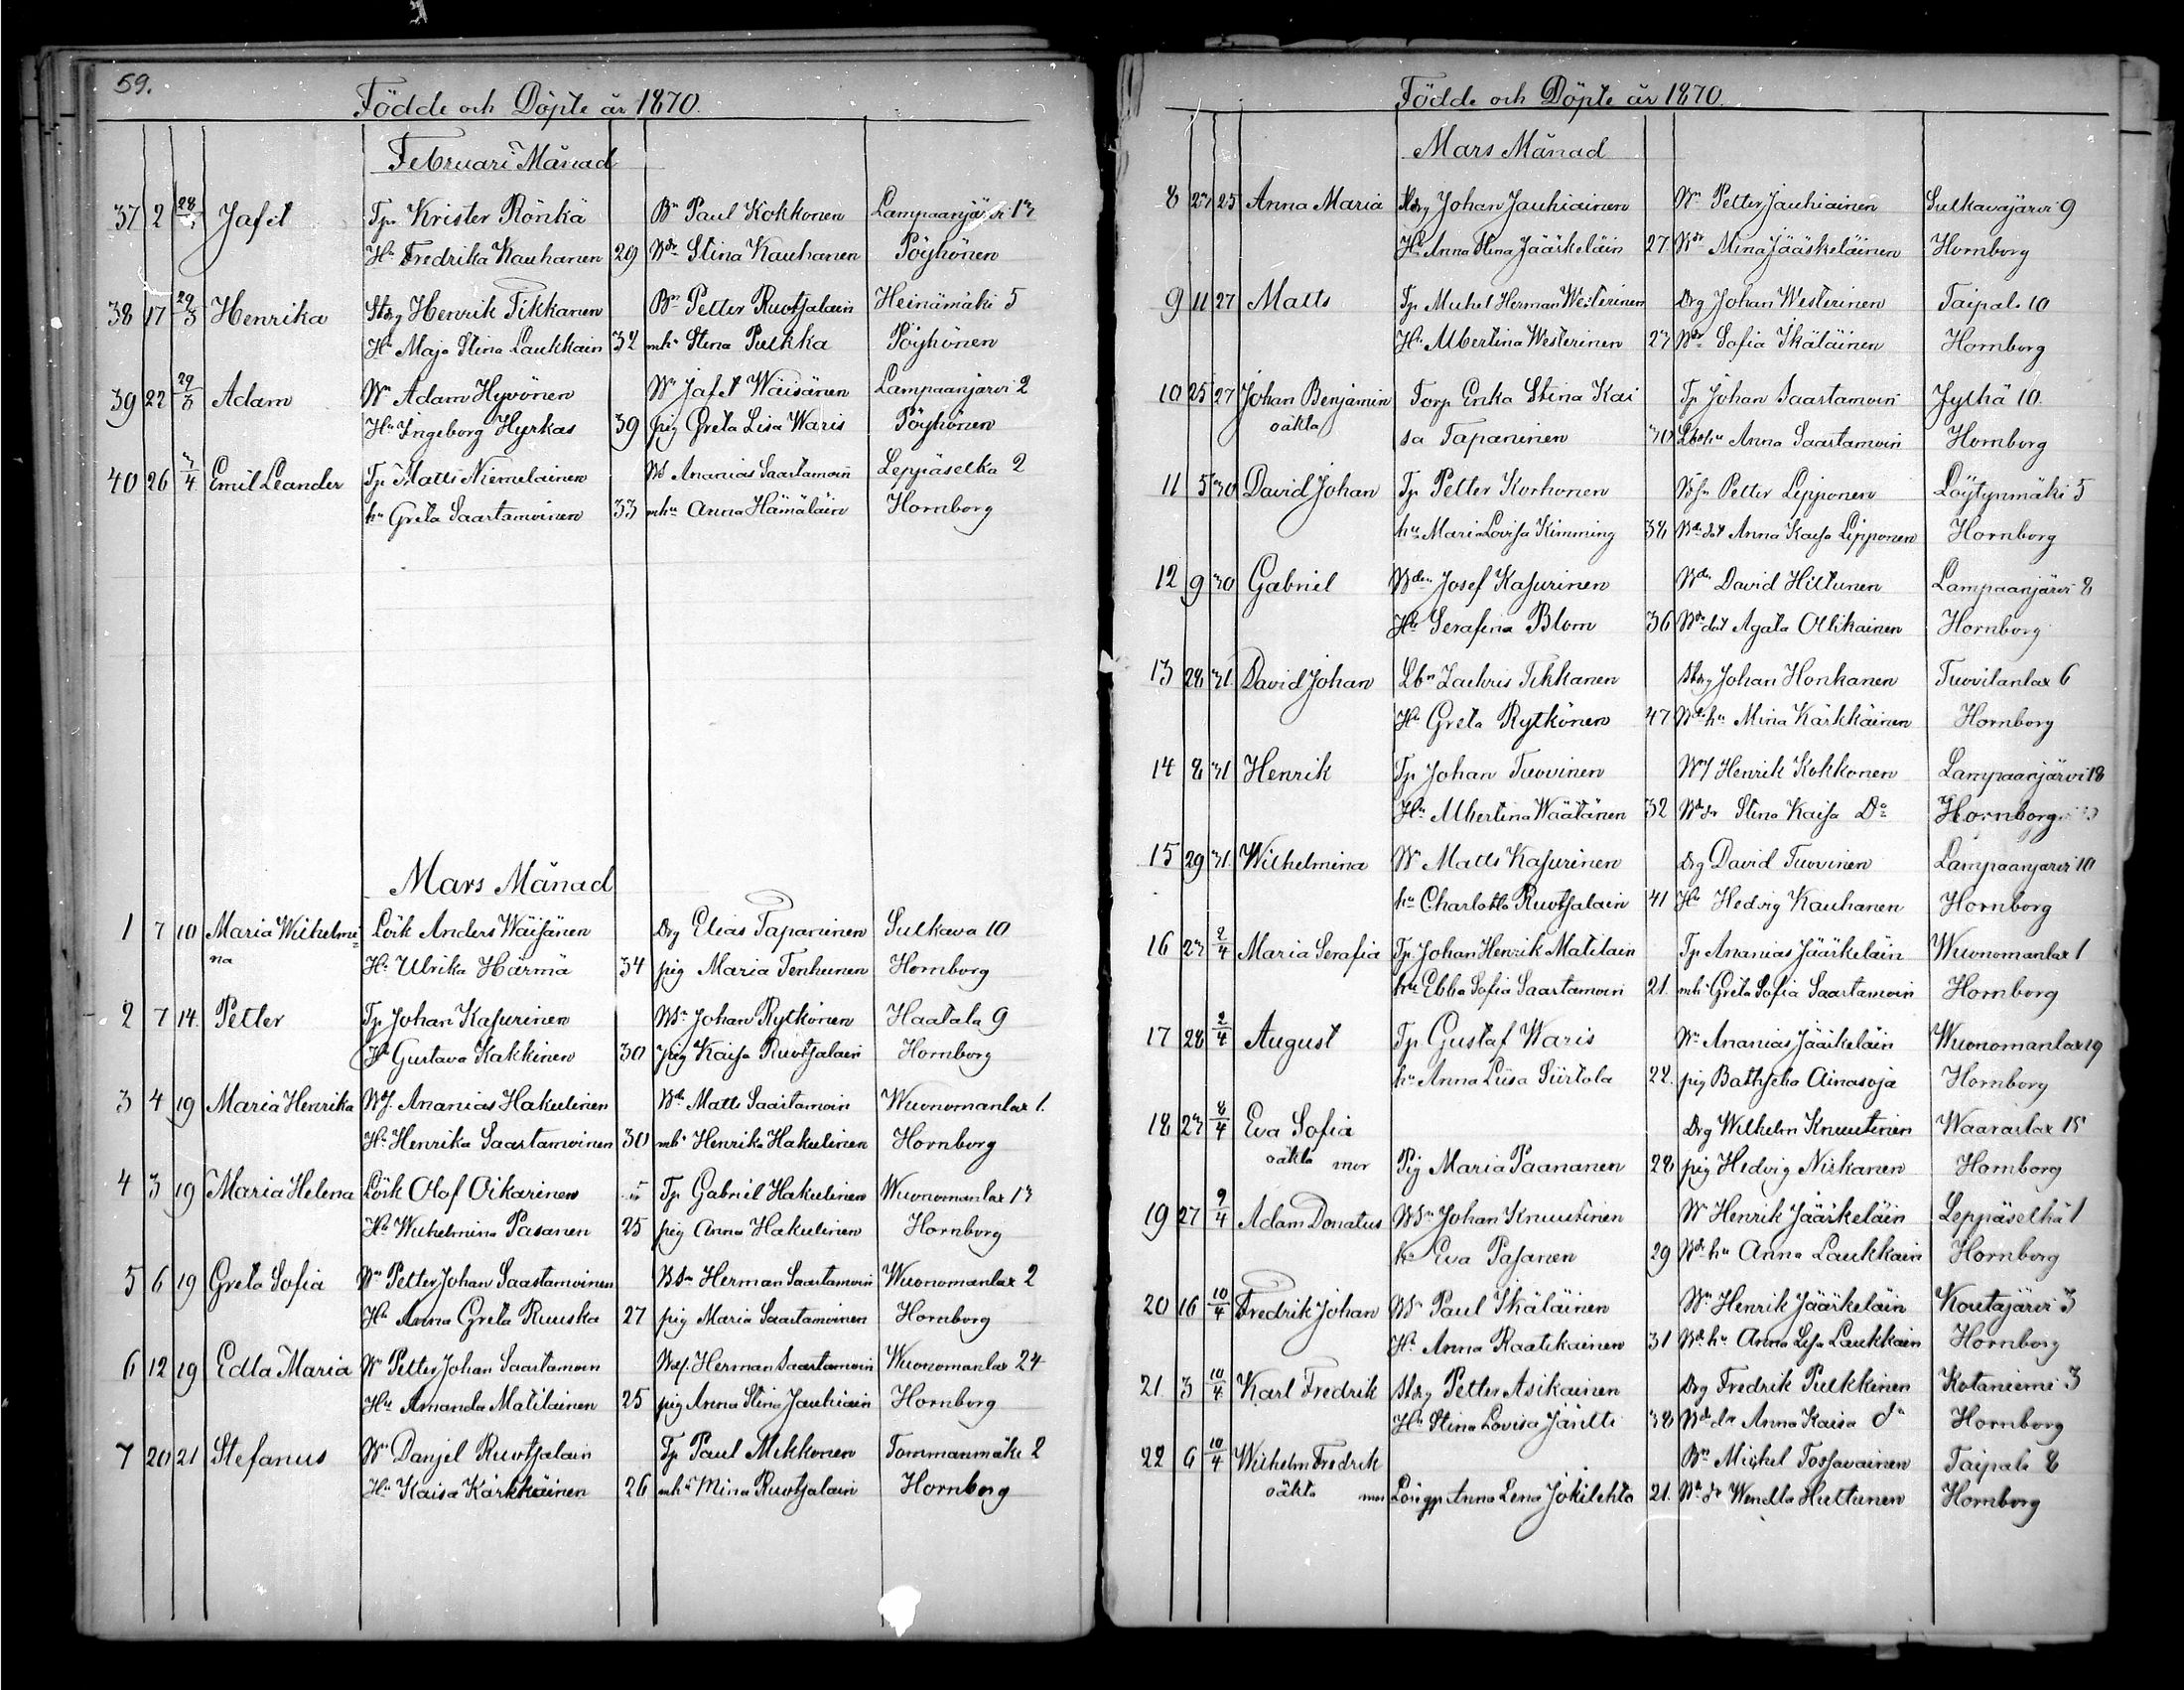 59.
Födde och Döpte år 1870.
Februari Månad
37 2 28/3 Jafet Tp. Krister Rönkä Bn Paul Kokkonen Lampaanjärvi 13
Hu Fredrika Kauhanen 29 Wdr Stina Kauhanen Pöyhönen
38 17 29/3 Henrika Stdrg Henrik Tikkanen Bn Petter Ruotsalain Heinämäki 5
Hu Maja Stina Laukkain 32 mhu Stina Pulkka Pöyhönen
39 22 29/3 Adam Wn Adam Hyvönen Wn Jafet Wäisänen Lampaanjärvi 2
Hu Ingeborg Hyrkas 39 pig Greta Lisa Waris Pöyhönen
40 26 3/4 Emil Leander Tp. Matts Niemelainen Ws Ananias Saastamoin Leppäselkä 2
hu Greta Saastamoinen 33 mhu Anna Hämäläin Hornborg
Mars Månad
1 7 10 Maria Wilhelmi= Lösk Anders Wäisänen Drg Elias Tapaninen Sulkava 10
na Hu Ulrika Härmä 34 pig Maria Tenhunen Hornborg
2 7 14. Petter Tp Johan Kasurinen Wsn Johan Rytkönen Haatala 9
Hu Gustava Kakkinen 30 pig Kaisa Ruotsalain Hornborg
3 4 19 Maria Henrika Wf. Ananias Hakulinen Wdn Matts Saastamoin Wuonomanlax 1.
Hu Henrika Saastamoinen 30 mhu Henrika Hakulinen Hornborg
4 3 19 Maria Helena Lösk Olof Oikarinen Tp Gabriel Hakulinen Wuonomanlax 13
Hu Wilhelmina Pasanen 25 pig Anna Hakulinen Hornborg
5 6 19 Greta Sofia Wn Petter Johan Saastamoinen Bsn Herman Saastamoin Wuonomanlax 2
Hu Anna Greta Ruuska 27 pig Maria Saastamoinen Hornborg
6 12 19 Edla Maria Wn Petter Johan Saastamoin Wdf. Herman Saastamoin Wuonomanlax 24
Hu Amanda Matilainen 25 pig Anna Stina Jauhiain Hornborg
7 20 21 Stefanus Wn Danjel Ruotsalain Tp Paul Mikkonen Tommanmäki 2
Hu Kaisa Kärkkäinen 26 mhu Mina Ruotsalain Hornborg
Födde och Döpte år 1870.
Mars Månad
8 23 25 Anna Maria Stdrg Johan Jauhiainen Wn Petter Jauhiainen Sulkavajärvi 9
Hu Anna Stina Jääskeläin 27 Wdr Mina Jääskeläinen Hornborg
9 11 27 Matts Tp Mickel Herman Westerinen Drg Johan Westerinen Taipale 10
Hu Albertina Westerinen 23 Wdr Sofia Ikäläinen Hornborg
10 25 27 Johan Benjamin Torp Enka Stina Kai Tp Johan Saastamoin Jylhä 10.
oäkta sa Tapaninen 30 Anna Saastamoin Hornborg
11 5 30 David Johan Tp Petter Korhonen Petter Lipponen Löytynmäki 5
hu Maria Lovisa Kimming 38 Wdr dot Anna Kaisa Lipponen Hornborg
12 9 30 Gabriel Wdn Josef Kasurinen Wdn David Hiltunen Lampaanjärvi 8
Hu Serafina Blom 36 Wdn dot Agata Ollikainen Hornborg
13 28 31 David Johan Lbn Zachris Tikkanen Stdrg Johan Honkanen Tuovilanlax 6
Hu Greta Rytkönen 47 Wdn hu Mina Kärkkäinen Hornborg
14 8 31 Henrik Tp Johan Tuovinen Wf Henrik Kokkonen Lampaanjärvi 18
Hu Albertina Wäätänen 32 Wdr Stina Kaisa Do Hornborg
15 29 31. Wilhelmina Wn Matts Kasurinen Drg David Tuovinen Lampaanjärvi 10
hu Charlotta Ruotsalain 41 Hu Hedvig Kauhanen Hornborg
16 23 2/4 Maria Serafia Tp. Johan Henrik Matilain Tp Ananias Jääskeläin Wuonomanlax 1
hu Ebba Sofia Saastamoin 21. mhu Greta Sofia Saastamoin Hornborg
17 28 2/4 August Tp Gustaf Waris Wn Ananias Jääskeläin Wuonomanlax 19
hu Anna Liisa Siirtola 22. pig Bathseba Ainasoja Hornborg
18 23 8/4 Eva Sofia Drg Wilhelm Knuutinen Waaraslax 15
oäkta mor Pig Maria Paananen 28 pig Hedvig Niskanen Hornborg
19 27 9/4 Adam Donatus Wsn Johan Knuutinen Wn Henrik Jääskeläin Leppäselkä 1
hu Eva Pasanen 29 Wdn hu Anna Laukkain Hornborg
20 16 10/4 Fredrik Johan Wsn Paul Ikäläinen Wn Henrik Jääskeläin Koutajärvi 3
Hu Anna Raatikainen 31 Wdn hu Anna Lisa Laukkain Hornborg
21. 3 10/4 Karl Fredrik Stdrg Petter Asikainen Drg Fredrik Pulkkinen Kotaniemi 3
Hu Stina Lovisa Jäntti 38 Anna Kaisa do Hornborg
22 6 10/4 Wilhelm Fredrik Bn Mickel Tossavainen Taipale 8
oäkta mor Anna Lena Jokilehto 21. Wendla Huttunen Hornborg